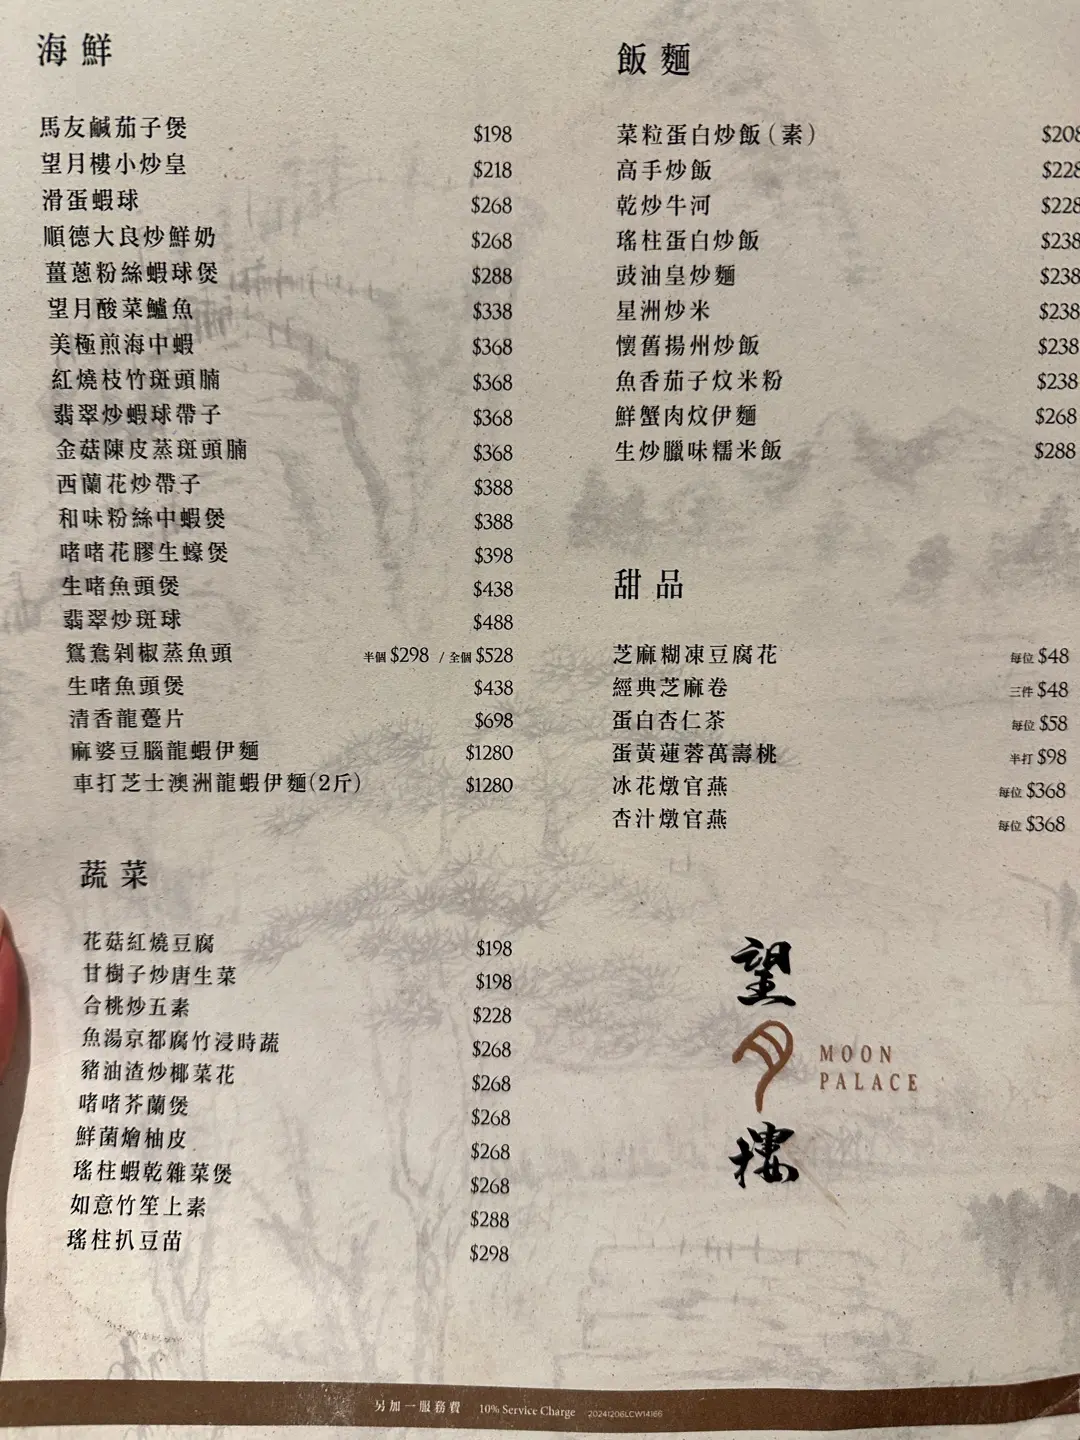 海鮮
馬友鹹茄子煲 $198
望月樓小炒皇 $218
滑蛋蝦球 $268
順德大良炒鮮奶 $268
薑蔥粉絲蝦球煲 $288
望月酸菜鱸魚 $338
美極煎海中蝦 $368
紅燒枝竹斑頭腩 $368
翡翠炒蝦球帶子 $368
金菇陳皮蒸斑頭腩 $368
西蘭花炒帶子 $388
和味粉絲中蝦煲 $388
啫啫花膠生蠔煲 $398
生啫魚頭煲 $438
翡翠炒斑球 $488
鴛鴦剁椒蒸魚頭 半個 $298 / 全個 $528
生啫魚頭煲 $438
清香龍躉片 $698
麻婆豆腦龍蝦伊麵 $1280
車打芝士澳洲龍蝦伊麵(2斤) $1280
蔬菜
花菇紅燒豆腐 $198
甘樹子炒唐生菜 $198
合桃炒五素 $228
魚湯京都腐竹浸時蔬 $268
豬油渣炒椰菜花 $268
啫啫芥蘭煲 $268
鮮菌燴柚皮 $268
瑤柱蝦乾雜菜煲 $268
如意竹笙上素 $288
瑤柱扒豆苗 $298
飯麵
菜粒蛋白炒飯(素) $208
高手炒飯 $228
乾炒牛河 $228
瑤柱蛋白炒飯 $238
豉油皇炒麵 $238
星洲炒米 $238
懷舊揚州炒飯 $238
魚香茄子炆米粉 $238
鮮蟹肉炆伊麵 $268
生炒臘味糯米飯 $288
甜品
芝麻糊凍豆腐花 每位 $48
經典芝麻卷 三件 $48
蛋白杏仁茶 每位 $58
蛋黃蓮蓉萬壽桃 半打 $98
冰花燉官燕 每位 $368
杏汁燉官燕 每位 $368
望月樓
MOON
PALACE
另加一服務費 10% Service Charge 20241206LCW14166